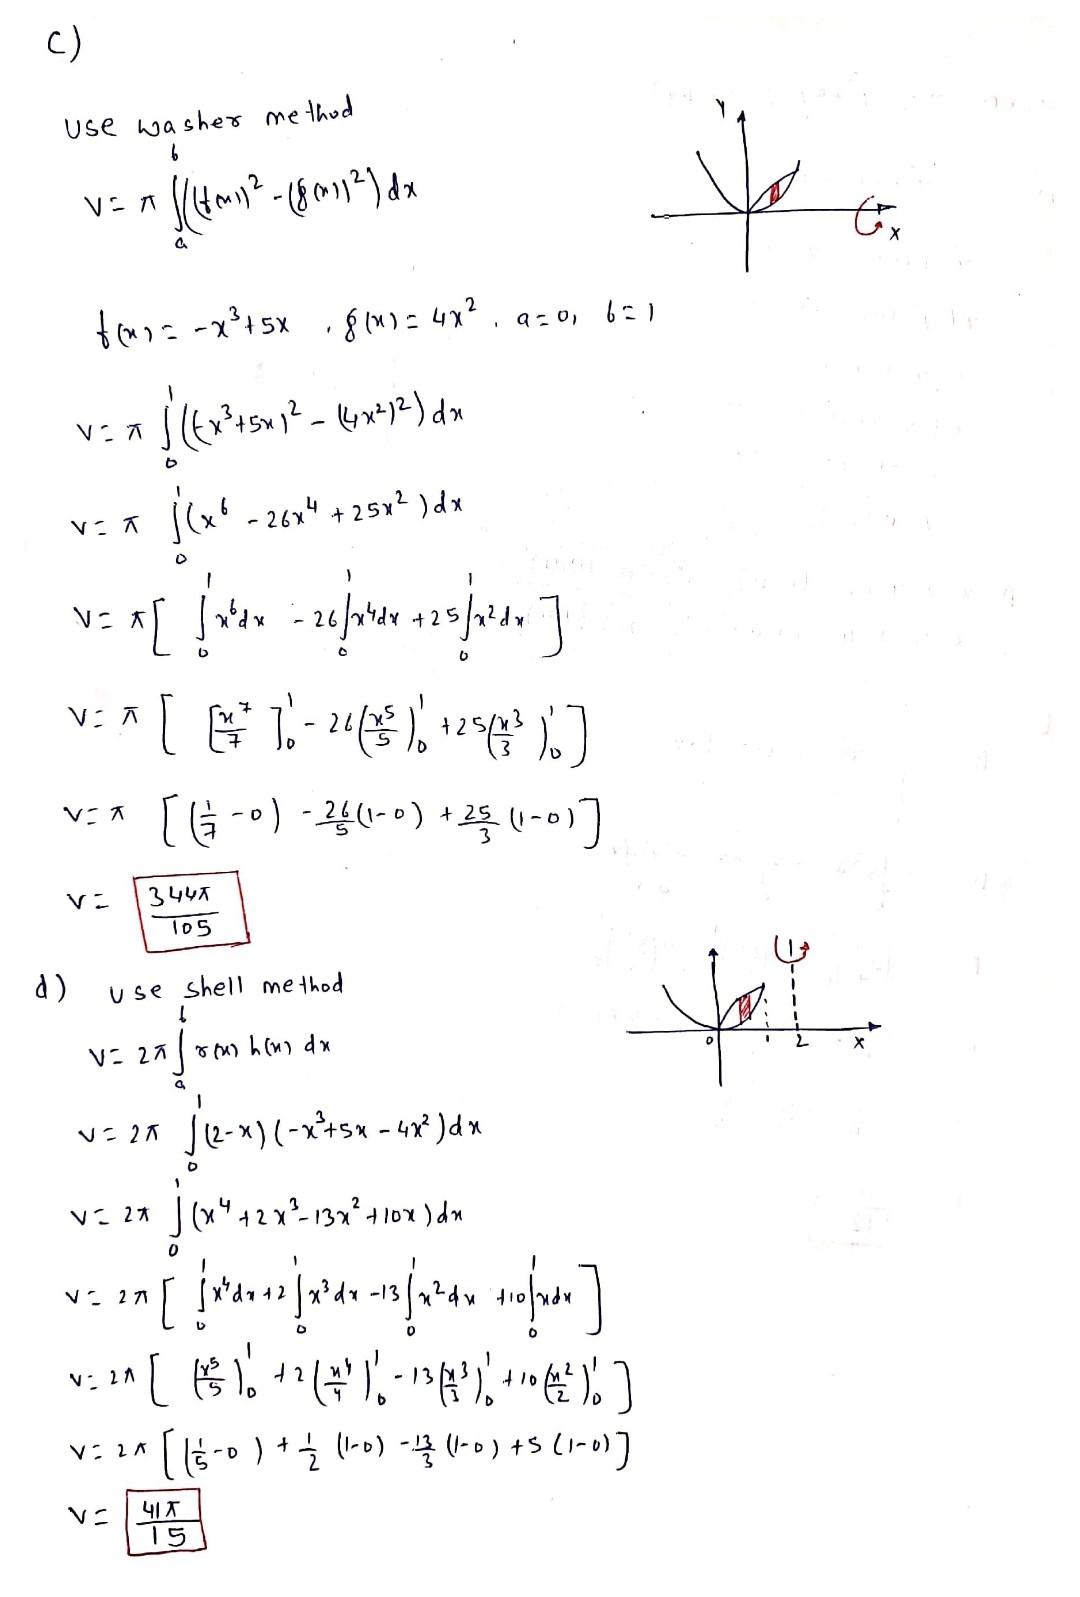 c)
Use washer method
Y
V = π ∫_a^b ((f(x))² - (g(x))²) dx
X
f(x) = -x³+5x , g(x) = 4x² , a=0, b=1
V = π ∫_0^1 ((-x³+5x)² - (4x²)²) dx
V = π ∫_0^1 (x⁶ - 26x⁴ + 25x²) dx
V = π [ ∫_0^1 x⁶dx - 26∫_0^1 x⁴dx + 25∫_0^1 x²dx ]
V = π [ [x⁷/7]_0^1 - 26(x⁵/5)_0^1 + 25(x³/3)_0^1 ]
V = π [ (1/7 - 0) - 26/5 (1-0) + 25/3 (1-0) ]
V = 344π/105
d) Use shell method
V = 2π ∫_a^b r(x) h(x) dx
0 1 2 X
V = 2π ∫_0^1 (2-x)(-x³+5x - 4x²) dx
V = 2π ∫_0^1 (x⁴+2x³-13x²+10x) dx
V = 2π [ ∫_0^1 x⁴dx + 2∫_0^1 x³dx - 13∫_0^1 x²dx + 10∫_0^1 xdx ]
V = 2π [ (x⁵/5)_0^1 + 2(x⁴/4)_0^1 - 13(x³/3)_0^1 + 10(x²/2)_0^1 ]
V = 2π [ (1/5 - 0) + 1/2 (1-0) - 13/3 (1-0) + 5(1-0) ]
V = 41π/15